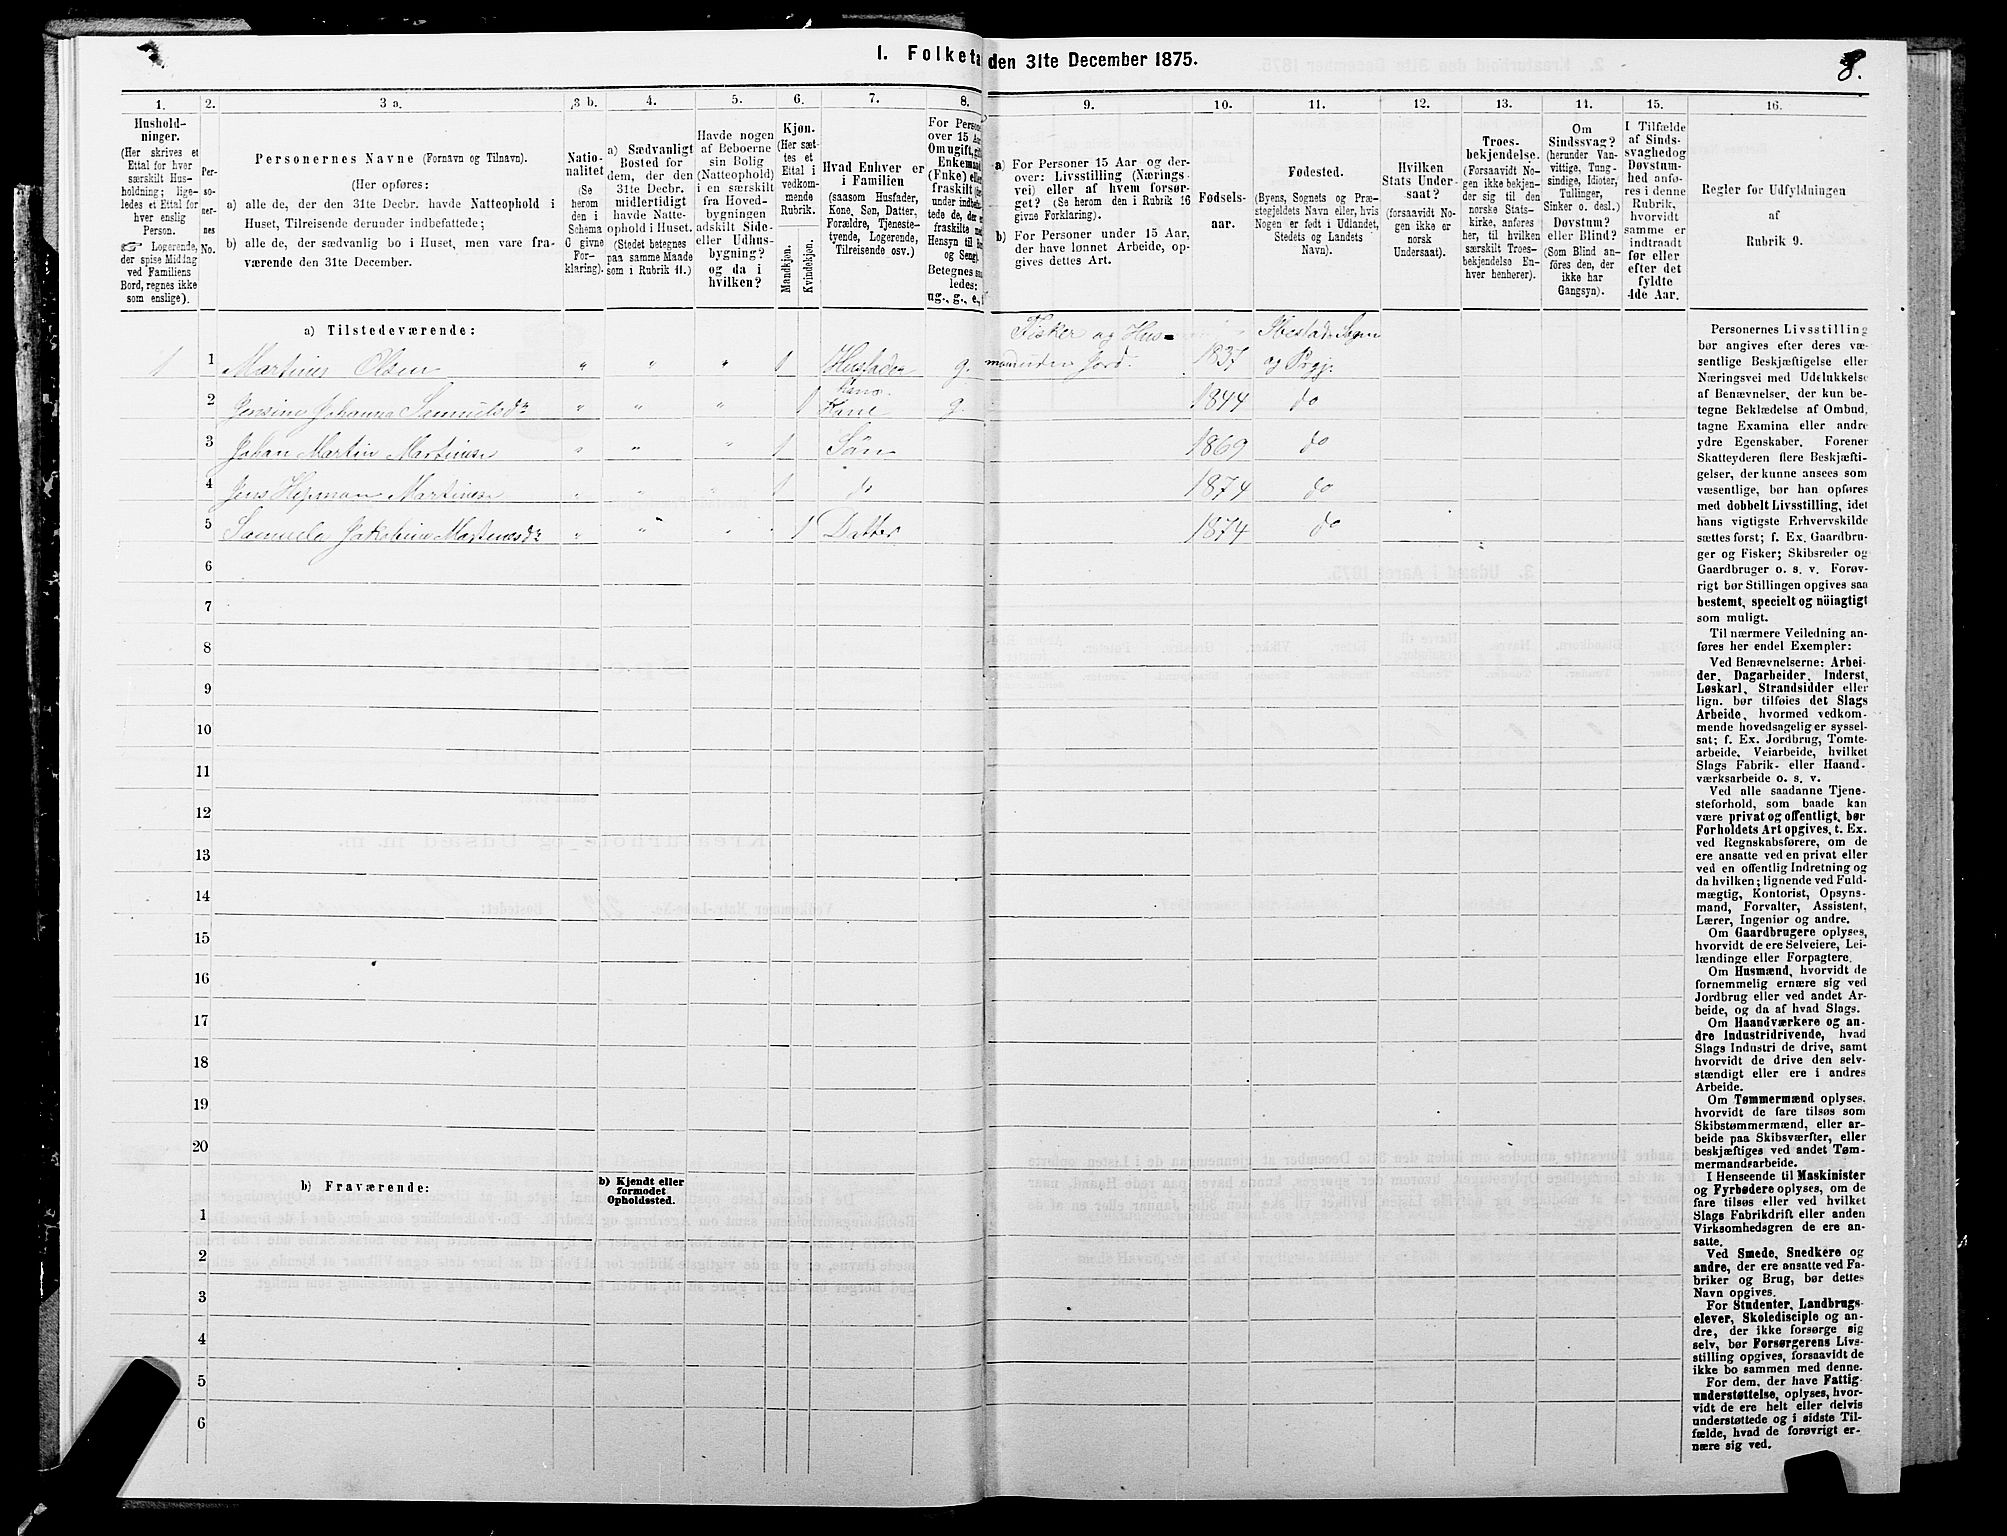 I. Folketa den 31te December 1875.
8.
1.
Hushold-
ninger.
(Her skrives et
Ettal for hver
særskilt Hus-
holdning; lige-
ledes et Ettal for
hver enslig
Person.
☞ Logerende,
der spise Middag
ved Familiens
Bord, regnes ikke
som enslige).
2.
Per-
so-
ner-
nes
No.
3 a.
Personernes Navne (Fornavn og Tilnavn).
(Her opføres:
a) alle de, der den 31te Decbr. havde Natteophold i
Huset, Tilreisende derunder indbefattede;
b) alle de, der sædvanlig bo i Huset, men vare fra-
værende den 31te December.
3 b.
Natio-
nalitet
(Se
herom
den i
Schema
C givne
For-
klaring).
4.
a) Sædvanligt
Bosted for
dem, der den
31te Decbr.
midlertidigt
havde Natte-
ophold i Huset.
(Stedet betegnes
paa samme Maade
som i Rubrik 11.)
5.
Havde nogen
af Beboerne
sin Bolig
(Natteophold)
i en særskilt
fra Hoved-
bygningen
adskilt Side-
eller Udhus-
bygning?
og da i
hvilken?
6.
Kjøn.
(Her sæt-
tes et
Ettal i
vedkom-
mende
Rubrik.
Mandkjøn.
Kvindekjøn.
7.
Hvad Enhver er
i Familien
(saasom Husfader,
Kone, Søn, Datter,
Forældre, Tjeneste-
tyende, Logerende,
Tilreisende osv.)
8.
For Person
over 15 Aa
Om ugift, gif
Enkemand
(Enke) elle
fraskilt (der
under indbe
tede de, der e
fraskilte m
Hensyn til B
og Seng).
Betegnes saa
ledes:
ug., g., e., f
9.
a) For Personer 15 Aar og der-
over: Livsstilling (Nærings-
vei) eller af hvem forsør-
get? (Se herom den i Rubrik 16
givne Forklaring).
b) For Personer under 15 Aar,
der have lønnet Arbeide, op-
gives dettes Art.
10.
Fødsels-
aar.
11.
Fødested.
(Byens, Sognets og Præ-
stegjeldets Navn eller, hvis
Nogen er født i Udlandet,
Stedets og Landets
Navn).
12.
Hvilken
Stats Under-
saat?
(forsaavidt No-
gen ikke er
norsk
Undersaat).
13.
Troes-
bekjendelse.
(Forsaavidt No-
gen ikke bekjen-
der sig til den
norske Stats-
kirke, anføres
her, til hvilken
særskilt Troes-
bekjendelse En-
hver henhører).
14.
Om
Sindssvag?
(herunder Van-
vittige, Tung-
sindige, Idioter,
Tullinger,
Sinker o. desl.)
Døvstum?
eller Blind?
(Som Blind an-
føres den, der
ikke har
Gangsyn).
15.
I Tilfælde
af Sinds-
svaghed og
Døvstum-
hed anfø-
res i denne
Rubrik,
hvorvidt
samme er
indtraadt
før eller
efter det
fyldte
4de Aar.
16.
Regler for Udfyldningen
af
Rubrik 9.
a) Tilstedeværende:
1 1 Martinus Olsen " " " 1 Husfader g. Fisker og Hus-manduden Jord. 1837 Ibestad Sogn og Prgj.
2 Jensine Johanna Samuelsdr " " " 1 Hans Kone g. 1844 do
3 Johan Martin Martinus " " " 1 Søn 1869 do
4 Jens Martinus " " " 1 do 1874 do
5 Samuela Jakobine Martinusdr " " " 1 Datter 1874 do
6
7
8
9
10
11
12
13
14
15
16
17
18
19
20
b) Fraværende:
b) Kjendt eller
formodet
Opholdssted.
1
2
3
4
5
6
Personernes Livsstilling
bør angives efter deres væ-
sentlige Beskjæftigelse eller
Næringsvei med Udelukkelse
af Benævnelser, der kun be-
tegne Beklædelse af Ombud,
tagne Examina eller andre
ydre Egenskaber. Forener
Skatteyderen flere Beskjæfti-
gelser, der kunne ansees som
væsentlige, bør han opføres
med dobbelt Livsstilling, idet
hans vigtigste Erhvervskilde
sættes først; f. Ex. Gaardbru-
ger og Fisker; Skibsreder og
Gaardbruger o. s. v. Forøv-
rigt bør Stillingen opgives saa
bestemt, specielt og nöiagtigt
som muligt.
Til nærmere Veiledning an-
føres her endel Exempler:
Ved Benævnelserne: Arbei-
der, Dagarbeider, Inderst,
Løskarl, Strandsidder eller
lign. bør tilføies det Slags
Arbeide, hvormed vedkom-
mende hovedsagelig er syssel-
sat; f. Ex. Jordbrug, Tomte-
arbeide, Veiarbeide, hvilket
Slags Fabrik- eller Haand-
værksarbeide o. s. v.
Ved alle saadanne Tjene-
steforhold, som baade kan
være privat og offentligt, bør
Forholdets Art opgives, t. Ex.
ved Regnskabsførere, om de
ere ansatte ved en privat eller
ved en offentlig Indretning og
da hvilken; lignende ved Fuld-
mægtig, Kontorist, Opsyns-
mand, Forvalter, Assistent,
Lærer, Ingeniør og andre.
Om Gaardbrugere oplyses,
hvorvidt de ere Selveiere, Lei-
lændinge eller Forpagtere.
Om Husmænd, hvorvidt de
fornemmelig ernære sig ved
Jordbrug eller ved andet Ar-
beide, og da af hvad Slags.
Om Haandværkere og an-
dre Industridrivende, hvad
Slags Industri de drive, samt
hvorvidt de drive den selv-
stændigt eller ere i andres
Arbeide.
Om Tømmermænd oplyses,
hvorvidt de fare tilsøs som
Skibstømmermænd, eller ar-
beide paa Skibsværfter, eller
beskjæftiges ved andet Tøm-
mermandsarbeide.
I Henseende til Maskinister
og Fyrbødere oplyses, om de
fare tilsøs eller ved hvilket
Slags Fabrikdrift eller anden
Virksomhedsgren de ere an-
satte.
Ved Smede, Snedkere og
andre, der ere ansatte ved Fa-
briker og Brug, bør dettes
Navn opgives.
For Studenter, Landbrugs-
elever, Skoledisciple og an-
dre, der ikke forsørge sig
selv, bør Forsørgerens Livs-
stilling opgives, forsaavidt de
ikke bo sammen med denne.
For dem, der have Fattig-
understøttelse, oplyses, hvor-
vidt de ere helt eller delvis
understøttede og i sidste Til-
fælde, hvad de forøvrigt er-
nære sig ved.